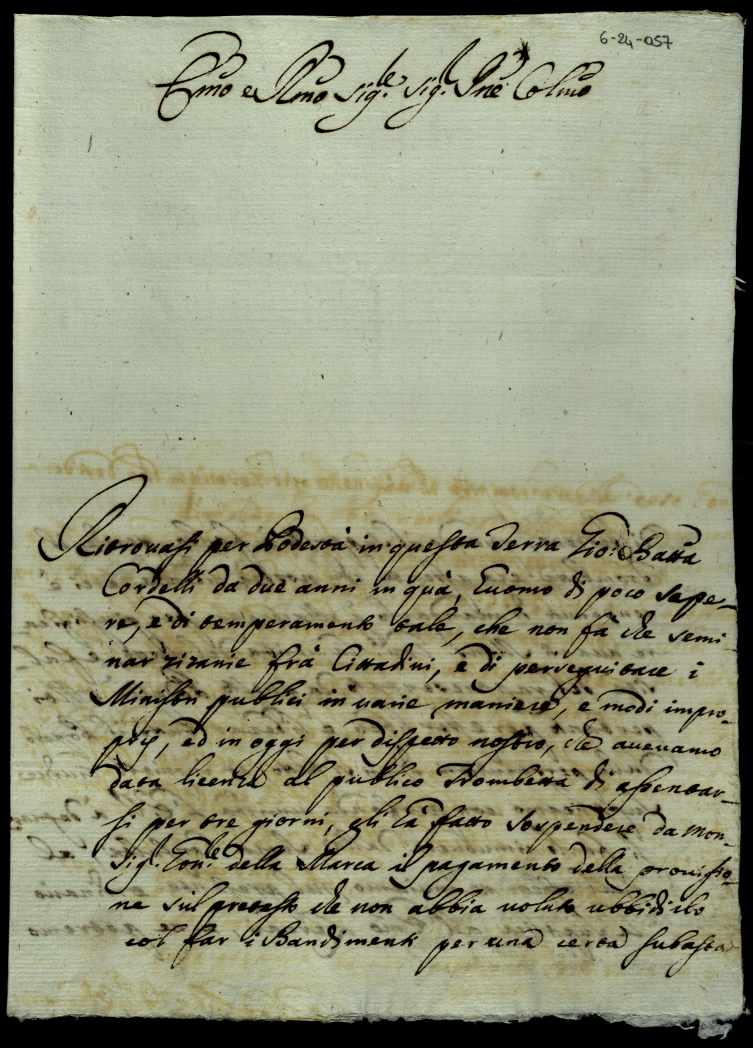 6-24-057
Emo e Rmo Sig.re Sig.r Pne Colmo
Ritrouasi per Podestà in questa Terra Gio: Batta
Cordelli da due anni in quà, huomo di poco sape-
re, e di temperamento tale, che non fà che semi
nar zizanie frà Cittadini, e di perseguitare i
Ministri publici in uarie maniere, e modi impro-
prij, ed in oggi per dispetto nostro, che aueuamo
data licenza al publico Trombetta di assentar-
si per tre giorni, gli hà fatto sospendere da Mon-
sig.r della Marca il pagamento della prouisio-
ne sul pretesto che non abbia uoluto ubbidirlo
col far i Bandimenti per una certa subasta